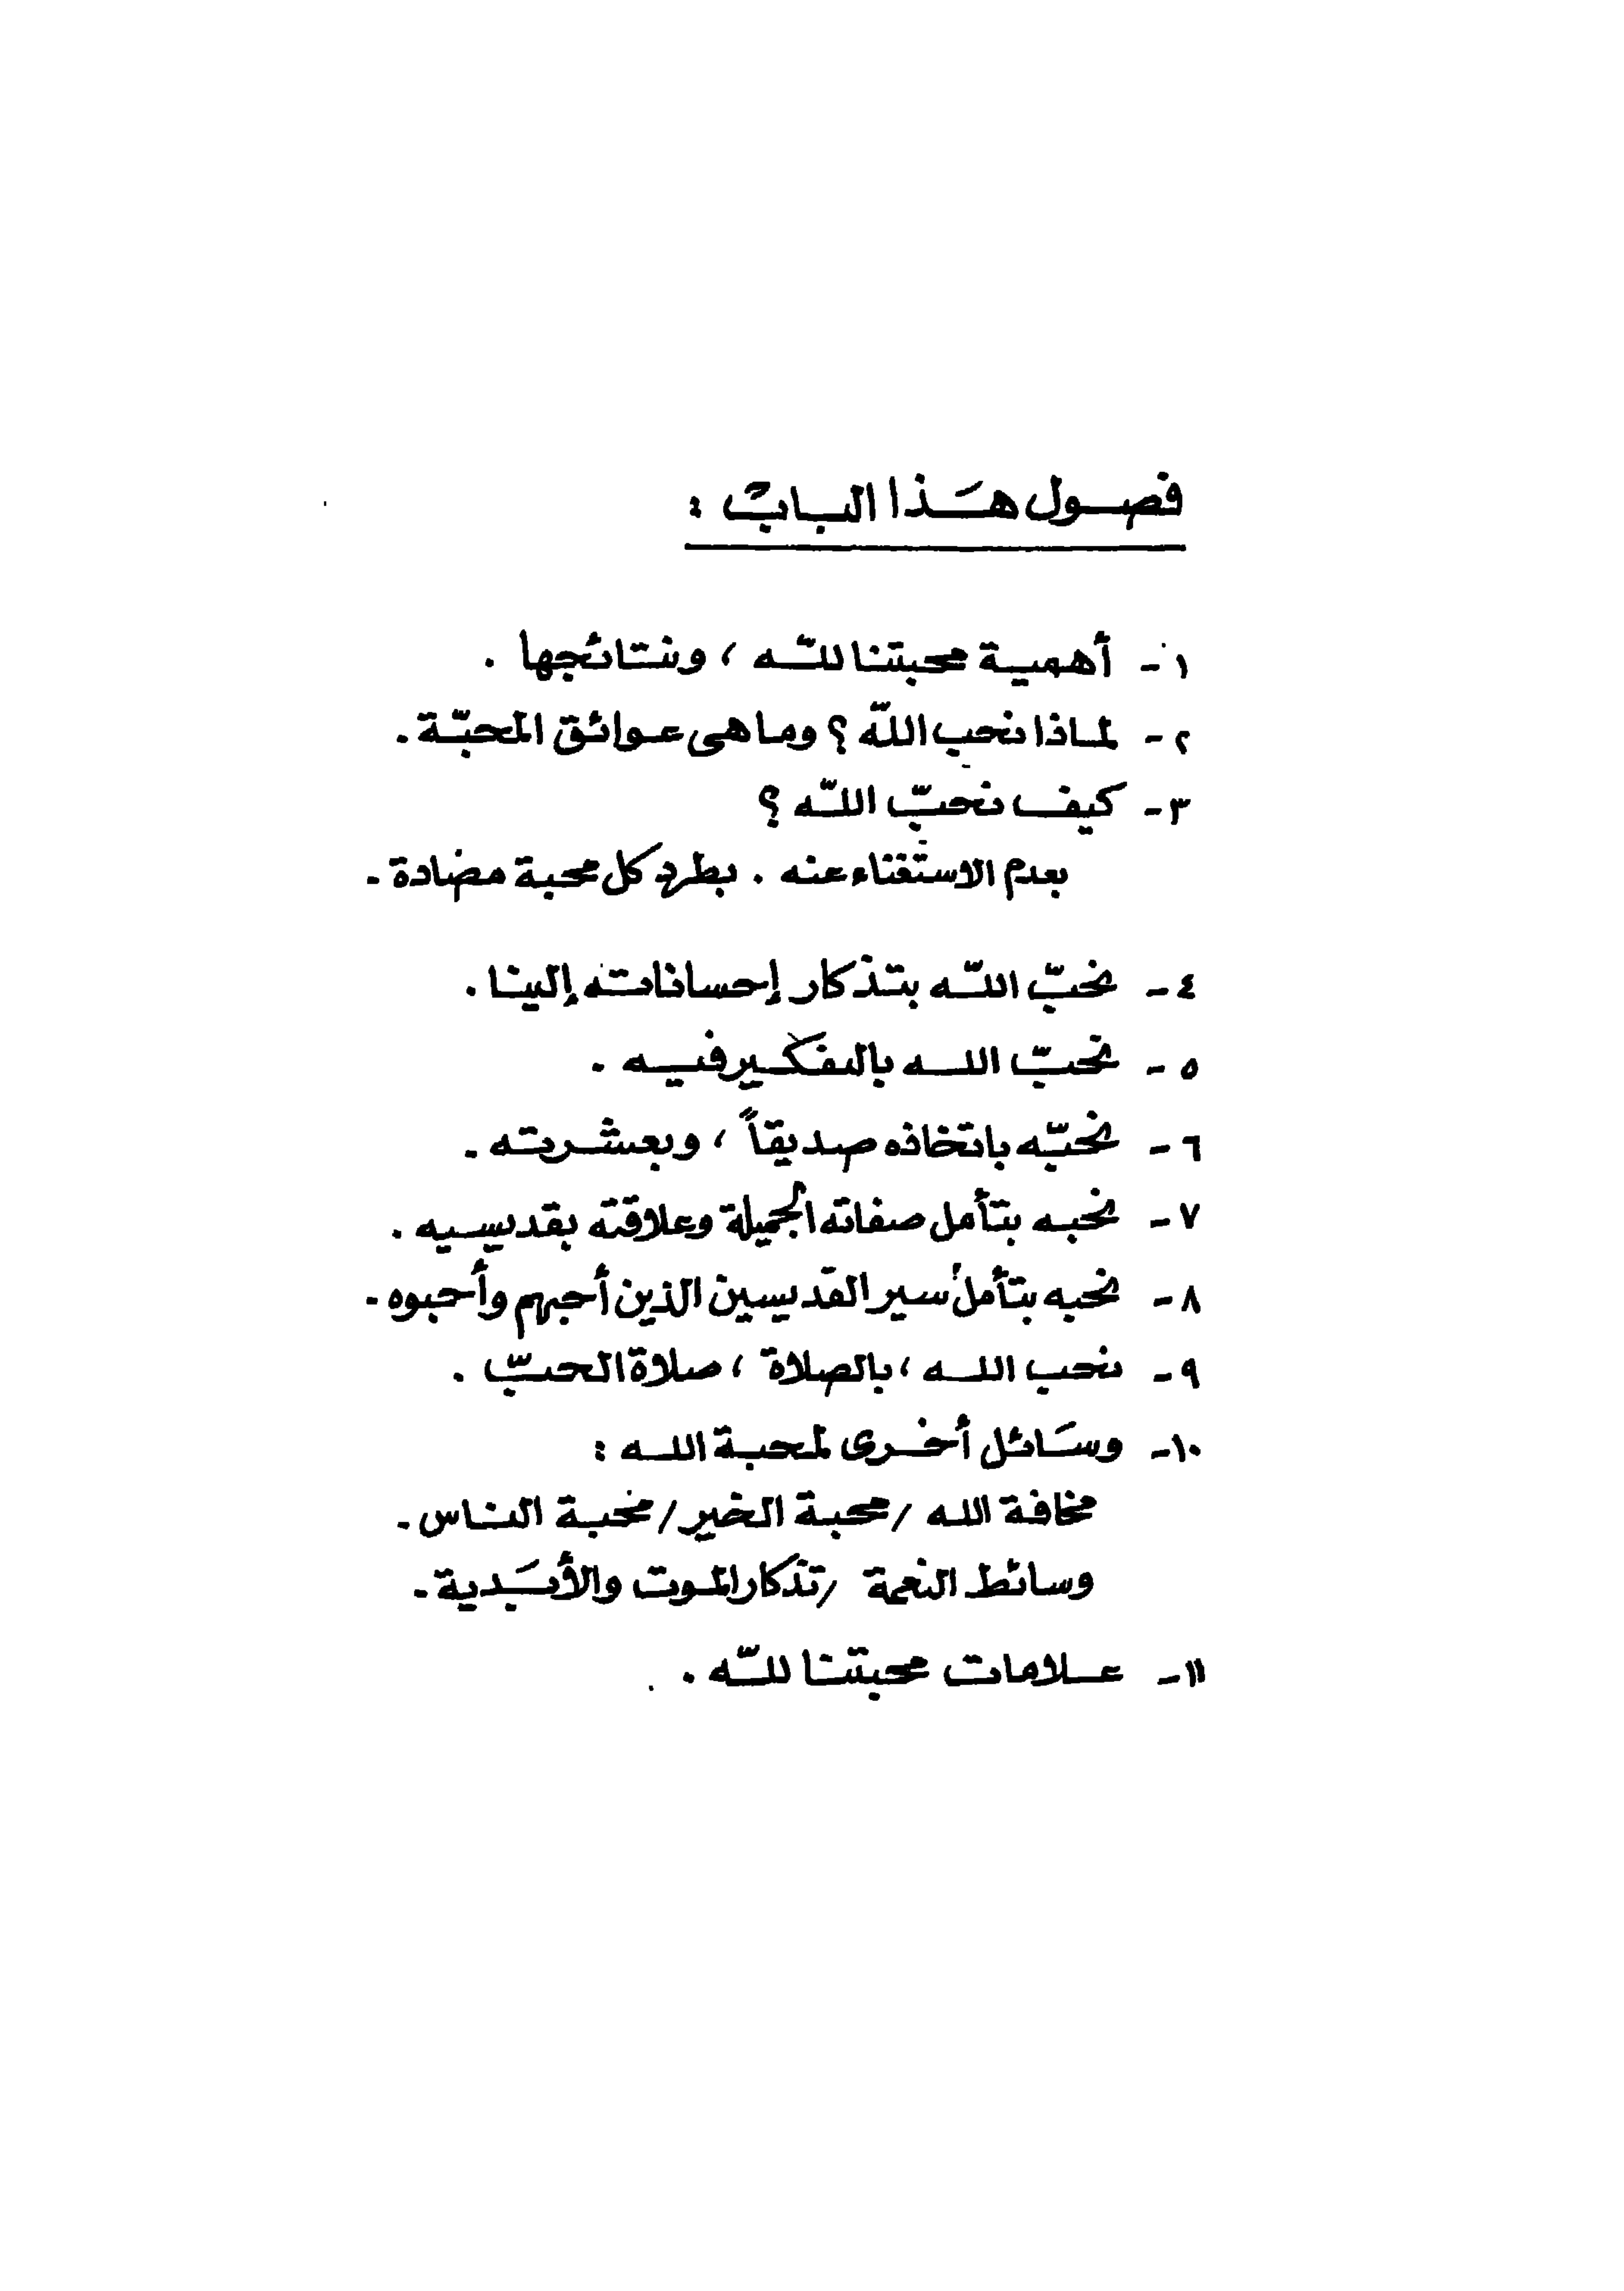 فصول هذا الباب :
١ - أهمية محبتنا للّه ، ونتائجها .
٢ - لماذا نحب اللّه ؟ وما هى عوائق المحبّة .
٣ - كيف نحبّ اللّه ؟
بعدم الاستغناء عنه . بطرد كل محبة مضادة .
٤ - نحبّ اللّه بتذكار إحساناته إلينا .
٥ - نحبّ الله بالتفكير فيه .
٦ - نحبّه باتخاذه صديقاً ، وبعشرته .
٧ - نحبه بتأمل صفاته الجميلة وعلاقته بقديسيه .
٨ - نحبه بتأمل سير القديسين الذين أحبهم وأحبوه .
٩ - نحب الله ، بالصلاة ، صلاة الحبّ .
١٠ - وسَائل أخرى لمحبة الله :
مخافة الله / محبة الخير / محبة الناس .
وسائط النعمة / تذكار الموت والأبَدية .
١١ - علامات محبتنا للّه .